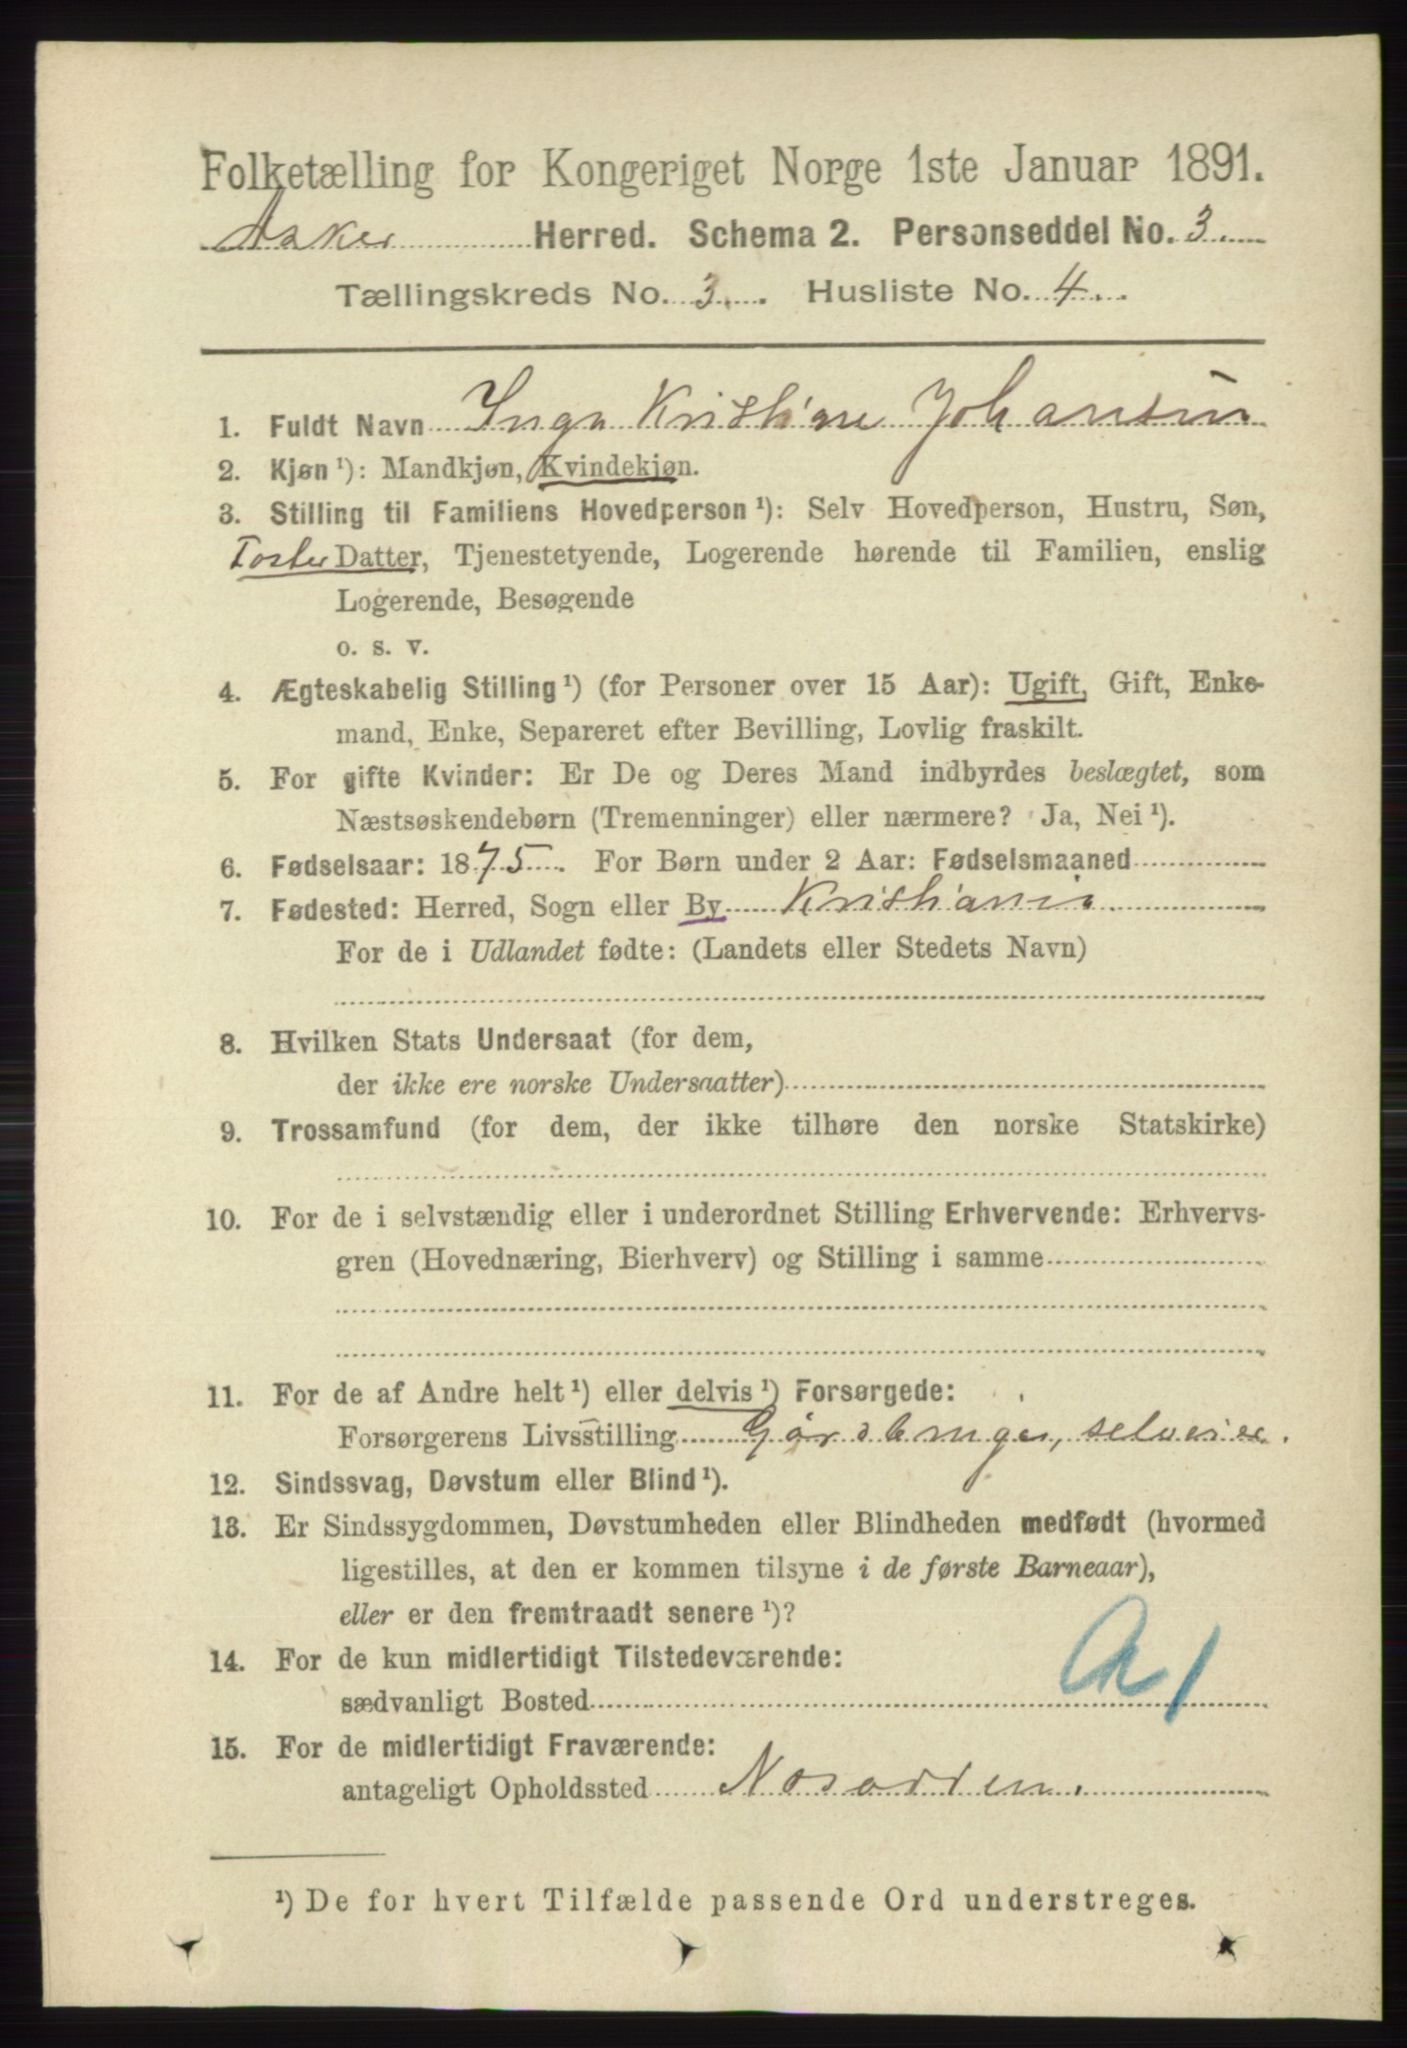 Folketælling for Kongeriget Norge 1ste Januar 1891.
Asker Herred. Schema 2. Personseddel No. 3.
Tællingskreds No. 3. Husliste No. 4.
1. Fuldt Navn Inga Kristiane Johansen
2. Kjøn ¹): Mandkjøn, Kvindekjøn.
3. Stilling til Familiens Hovedperson ¹): Selv Hovedperson, Hustru, Søn,
Foster Datter, Tjenestetyende, Logerende hørende til Familien, enslig
Logerende, Besøgende
o. s. v.
4. Ægteskabelig Stilling ¹) (for Personer over 15 Aar): Ugift, Gift, Enke-
mand, Enke, Separeret efter Bevilling, Lovlig fraskilt.
5. For gifte Kvinder: Er De og Deres Mand indbyrdes beslægtet, som
Næstsøskendebørn (Tremenninger) eller nærmere? Ja, Nei ¹).
6. Fødselsaar: 1875. For Børn under 2 Aar: Fødselsmaaned
7. Fødested: Herred, Sogn eller By Kristiania.
For de i Udlandet fødte: (Landets eller Stedets Navn)
8. Hvilken Stats Undersaat (for dem,
der ikke ere norske Undersaatter)
9. Trossamfund (for dem, der ikke tilhøre den norske Statskirke)
10. For de i selvstændig eller i underordnet Stilling Erhvervende: Erhvervs-
gren (Hovednæring, Bierhverv) og Stilling i samme
11. For de af Andre helt ¹) eller delvis ¹) Forsørgede:
Forsørgerens Livsstilling Gårdbruger, selveier.
12. Sindssvag, Døvstum eller Blind ¹).
13. Er Sindssygdommen, Døvstumheden eller Blindheden medfødt (hvormed
ligestilles, at den er kommen tilsyne i de første Barneaar),
eller er den fremtraadt senere ¹)?
14. For de kun midlertidigt Tilstedeværende:
sædvanligt Bosted
15. For de midlertidigt Fraværende:
antageligt Opholdssted Nesodden.
¹) De for hvert Tilfælde passende Ord understreges.